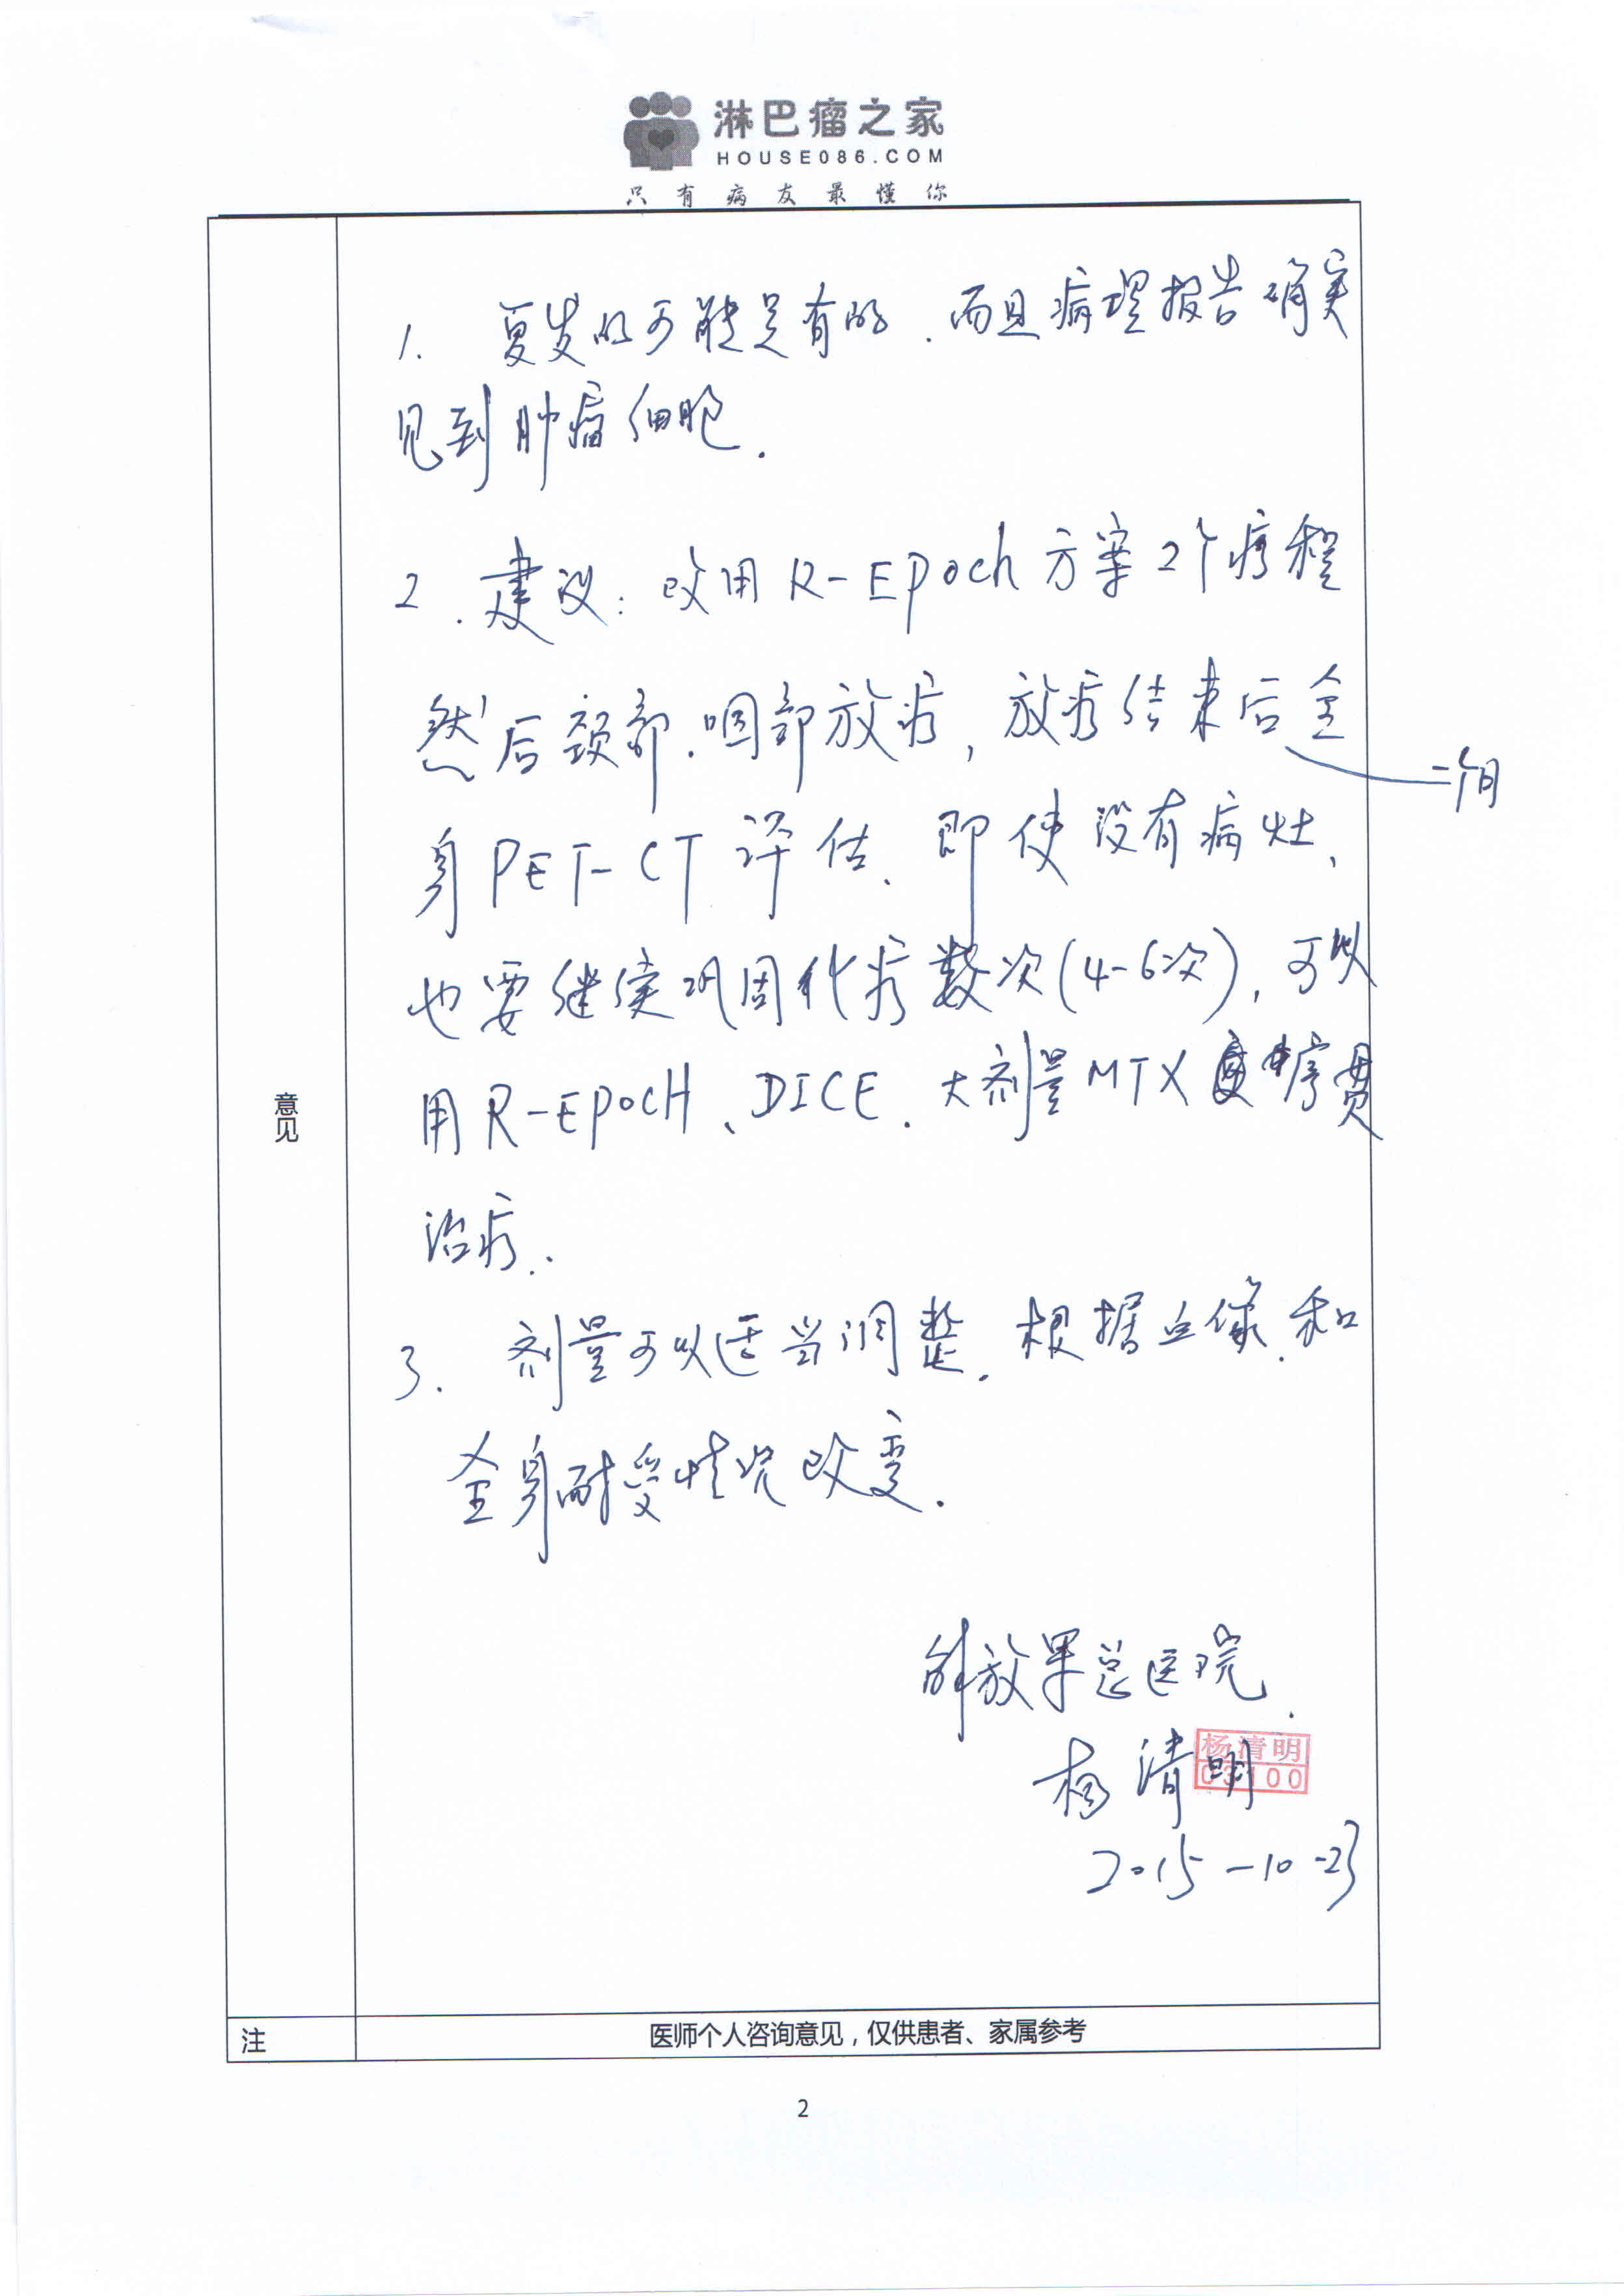 淋巴瘤之家
HOUSE086.COM
只有病友最懂你
1. 复发的可能是有的.而且病理报告确实
见到肿瘤细胞.
2.建议:改用R-EPoch方案2个疗程
然后颈部.咽部放疗,放疗结束后全
二个月
身PET-CT评估.即使没有病灶,
也要继续巩固化疗数次(4-6次),可以
用R-EPOCH、DICE.大剂量MTX序贯
治疗..
意见
3. 剂量可以适当调整.根据血像.和
全身耐受情况改变.
解放军总医院.
杨清明
杨清明
03100
2015-10-23
注
医师个人咨询意见，仅供患者、家属参考
2